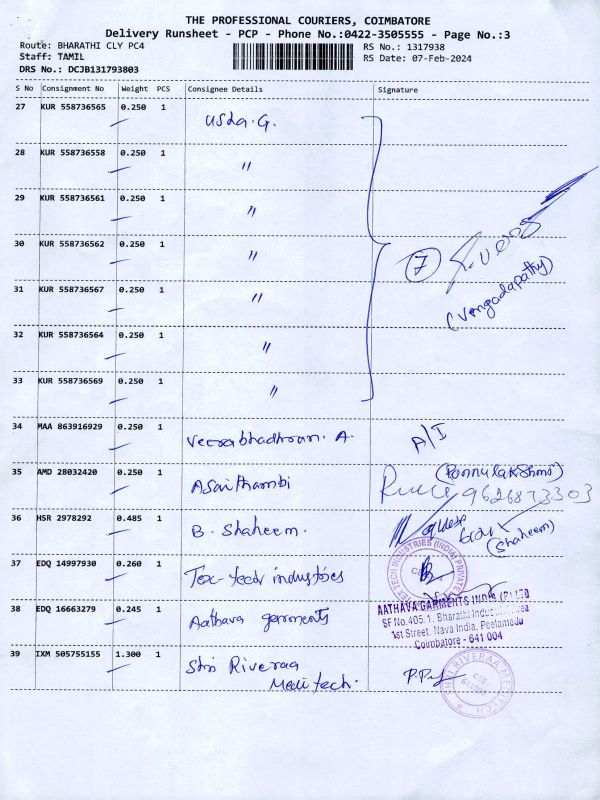 THE PROFESSIONAL COURIERS, COIMBATORE
Delivery Runsheet - PCP - Phone No.:0422-3505555 - Page No.:3
Route: BHARATHI CLY PC4
RS No.: 1317938
Staff: TAMIL
RS Date: 07-Feb-2024
DRS No.: DCJB131793803
S No Consignment No Weight PCS Consignee Details Signature
27 KUR 558736565 0.250 1 Usha.G.
28 KUR 558736558 0.250 1 〃
29 KUR 558736561 0.250 1 〃
30 KUR 558736562 0.250 1 〃
7
(Vengadapathy)
31 KUR 558736567 0.250 1 〃
32 KUR 558736564 0.250 1 〃
33 KUR 558736569 0.250 1 〃
34 MAA 863916929 0.250 1 Veerabhadhran. A. A/I
35 AMD 28032420 0.250 1 Asaithambi
(Ponnulakshmi)
36 HSR 2978292 0.485 1 B. Shaheem.
(Shaheem)
37 EDQ 14997930 0.260 1 Tex-tech industries
TEX TECH INDUSTRIES (INDIA) PRIVATE
38 EDQ 16663279 0.245 1 Aathava garments
AATHAVA GARMENTS INDIA (P) LTD
SF No.405.1. Bharathi Industrial Area
1st Street, Nava India, Peelamedu
Coimbatore - 641 004
39 IXM 505755155 1.300 1 Shri Riveraa
Meditech.
SHRI RIVERAA MEDITECH